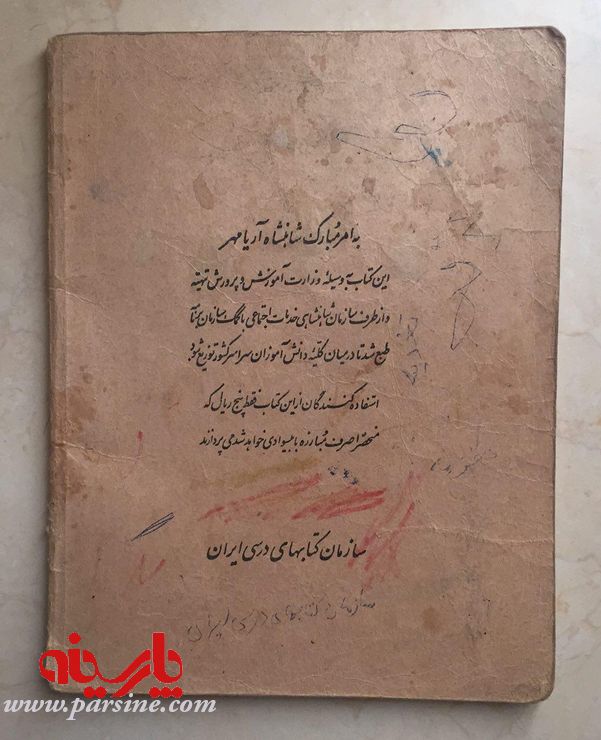 به امر مبارک شاهنشاه آریامهر
این کتاب به وسیله وزارت آموزش و پرورش تهیه
و از طرف سازمان شاهنشاهی خدمات اجتماعی با کمک سازمان برنامه
طبع شد تا درمیان کلیهٔ دانش آموزان سراسر کشور توزیع شود
استفاده کنندگان از این کتاب فقط پنج ریال که
منحصراً صرف مبارزه با بیسوادی خواهد شد می پردازند
سازمان کتابهای درسی ایران
سازمان کتابهای درسی ایران
پارسینه
www.parsine.com